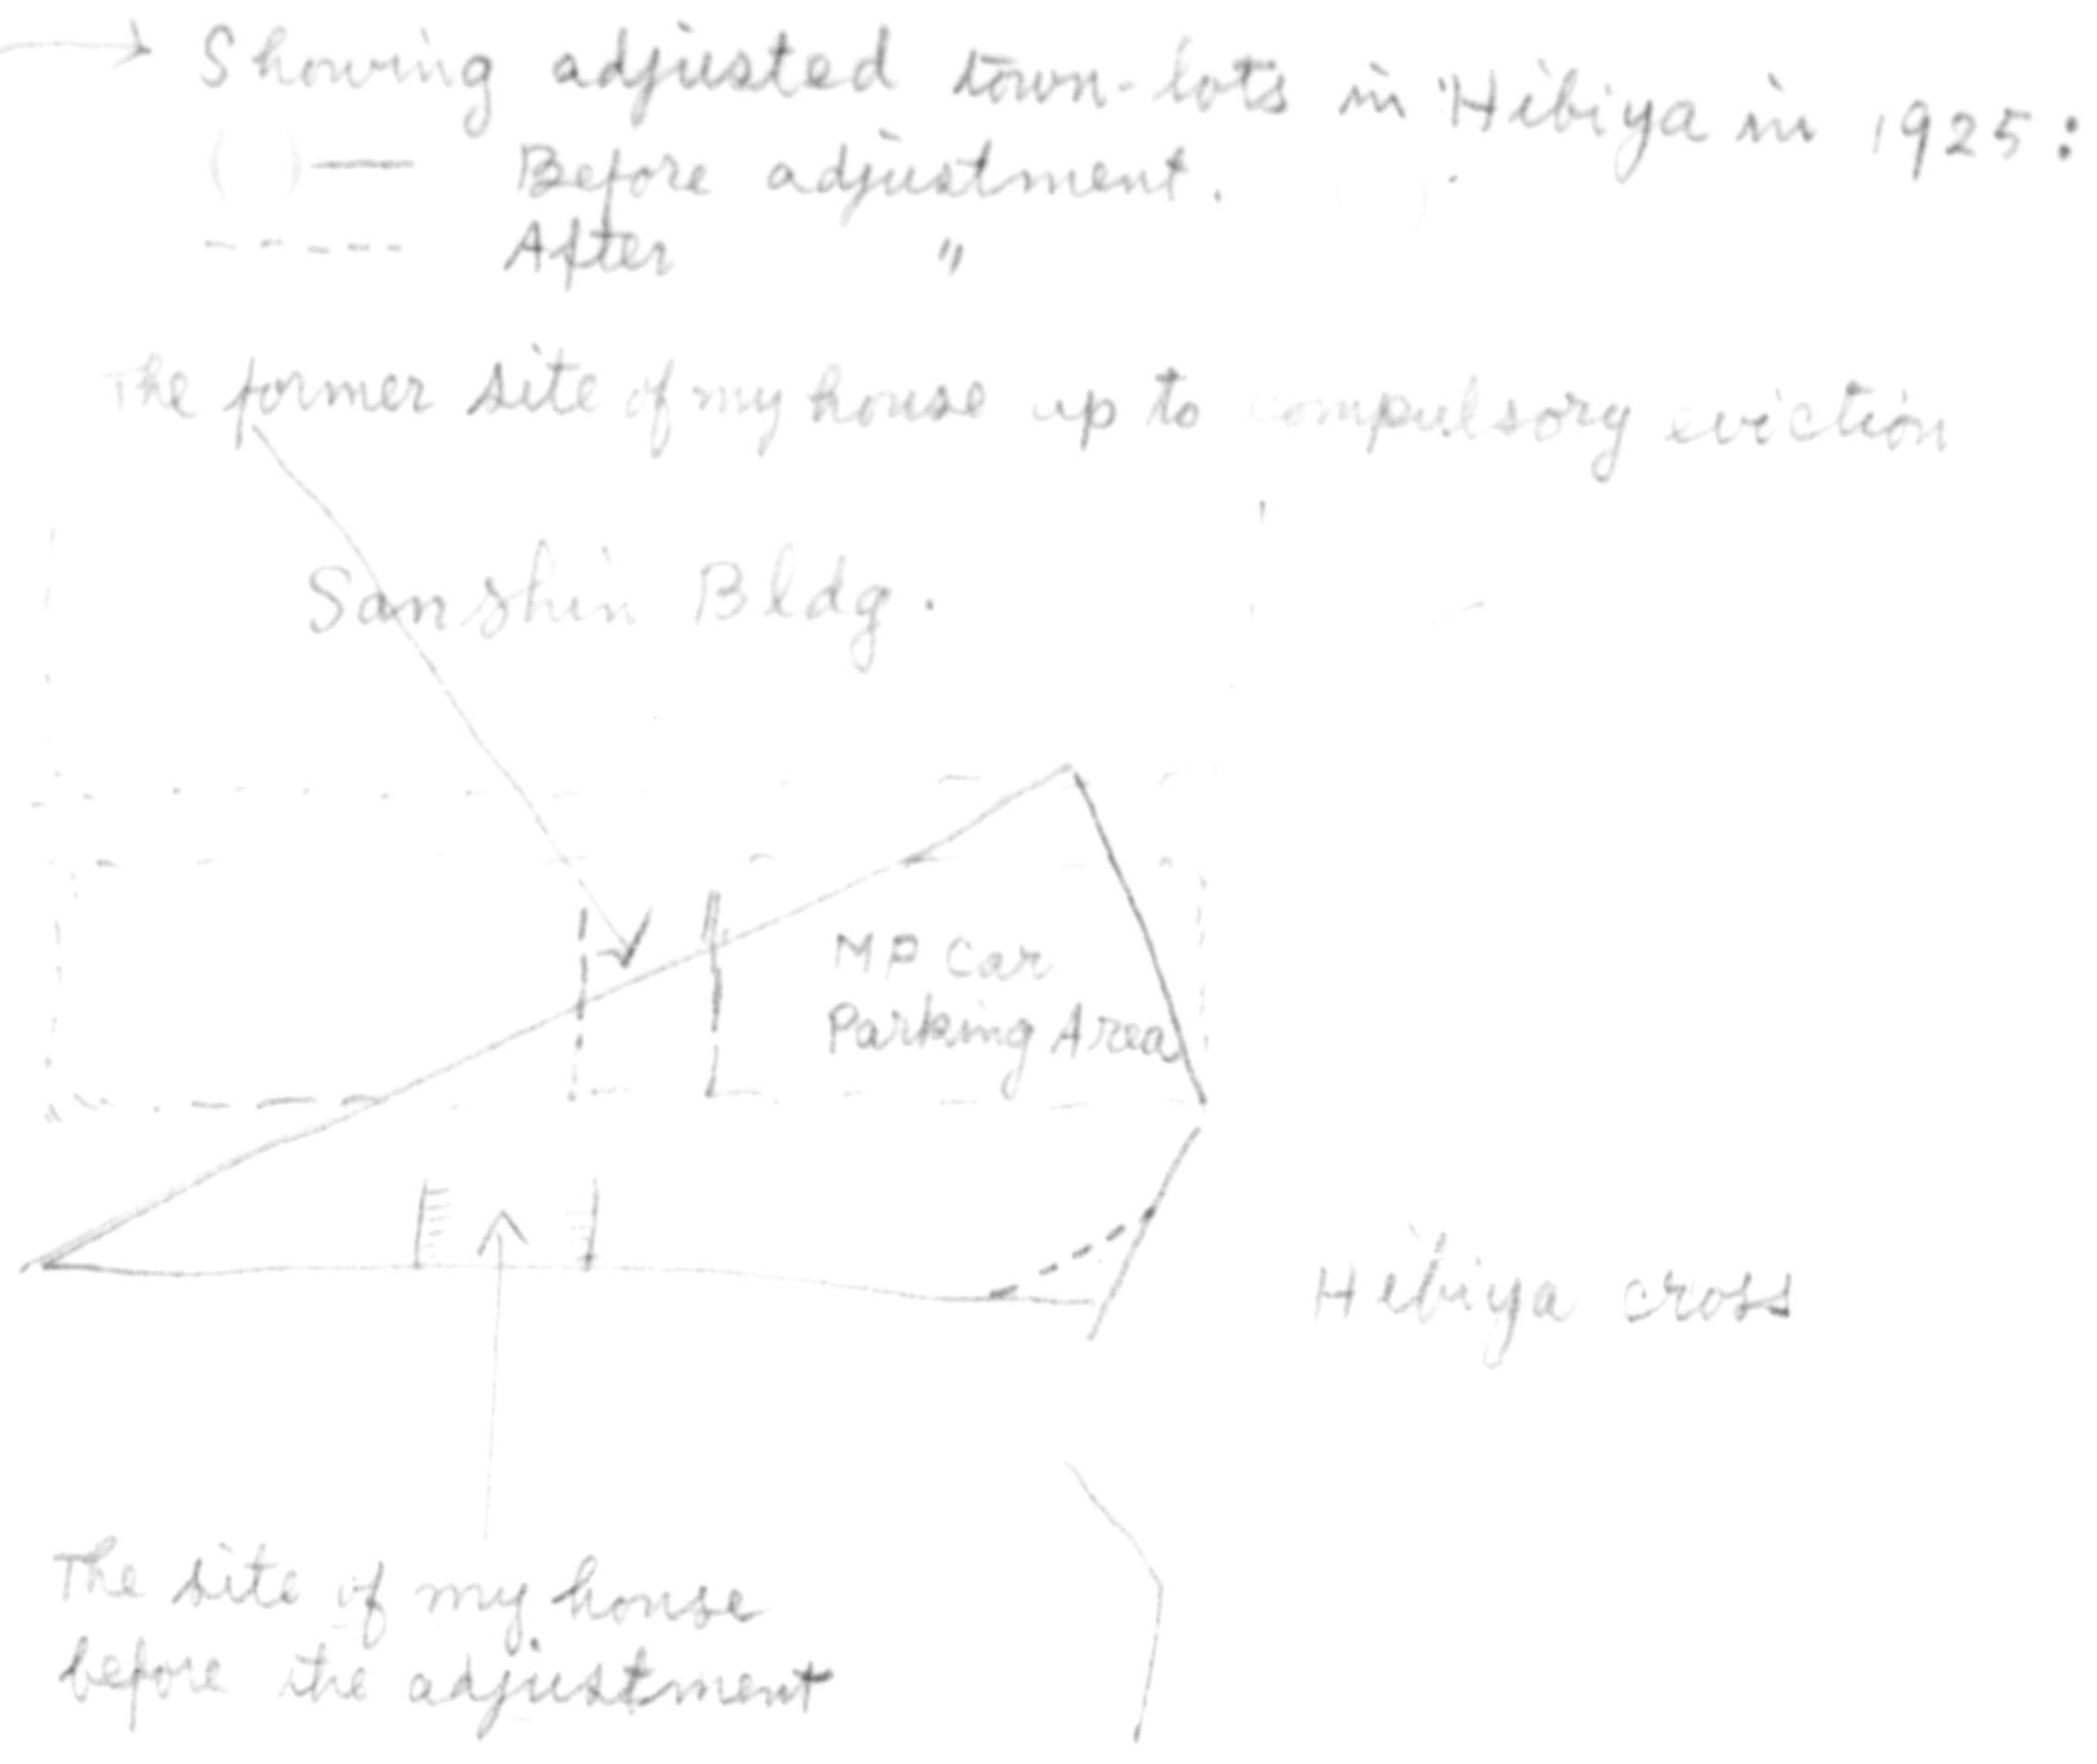 Showing adjusted town-lots in Hibiya in 1925:
( ) — Before adjustment.
----- After "
The former site of my house up to compulsory eviction
Sanshin Bldg.
MP Car
Parking Area
Hibiya cross
The site of my house
before the adjustment